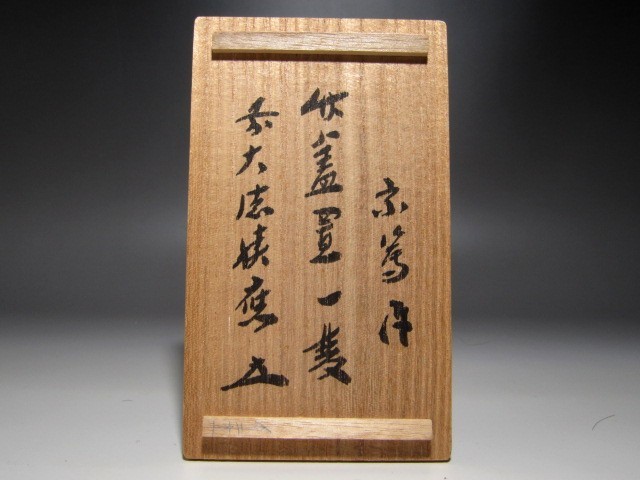 宗篤作
竹蓋置一雙
前大徳積應